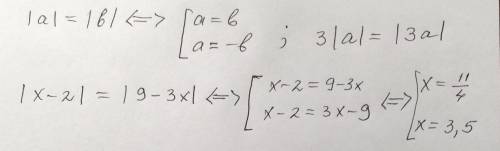 |a| = |b| <=> [ a = b
a = -b ; 3|a| = |3a|
|x-2| = |9-3x| <=> [ x-2 = 9-3x
x-2 = 3x-9 <=> [ x = 11/4
x = 3,5